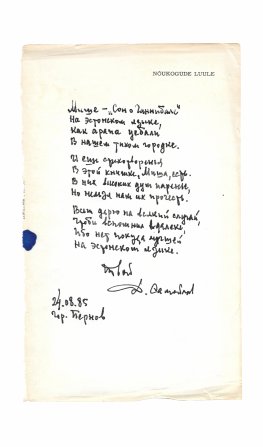 NÕUKOGUDE LUULE
Мише – „Сон о Ганнибале"
На эстонском языке,
Как арапа уебали
В нашем тихом городке.
И еще стихотворенья
В этой книжке, Миша, есть.
В них высоких дум паренье,
Но нельзя нам их прочесть.
дарю на всякий случай,
Чтобы вспомнил вдалеке
Что нет покуда лучшей
На эстонском языке.
Твой
Д. Самойлов
24.08.85
гор. Пернов